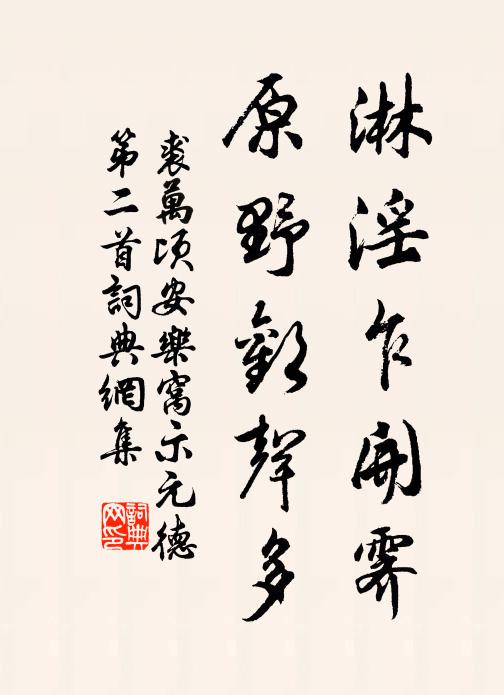 淋淫乍開霽
原野歡聲多
裘萬頃安樂窩示元德
第二首詞典網集
詞典
网印